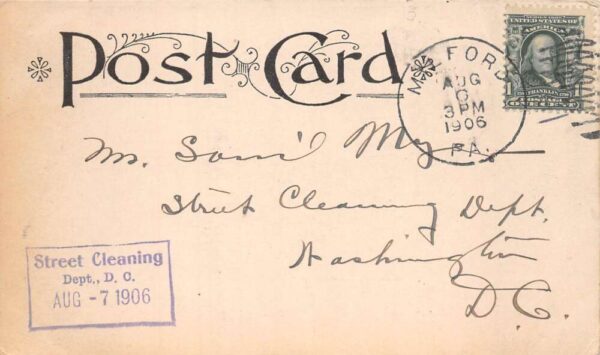 Post Card
UNITED STATES OF
AMERICA
FRANKLIN
POSTAGE
ONE CENT
MILFORD
AUG
3 PM
1906
PA.
Mr. Sam'l
Street Cleaning Dept.
Washington
D.C.
Street Cleaning
Dept., D. C.
AUG -7 1906